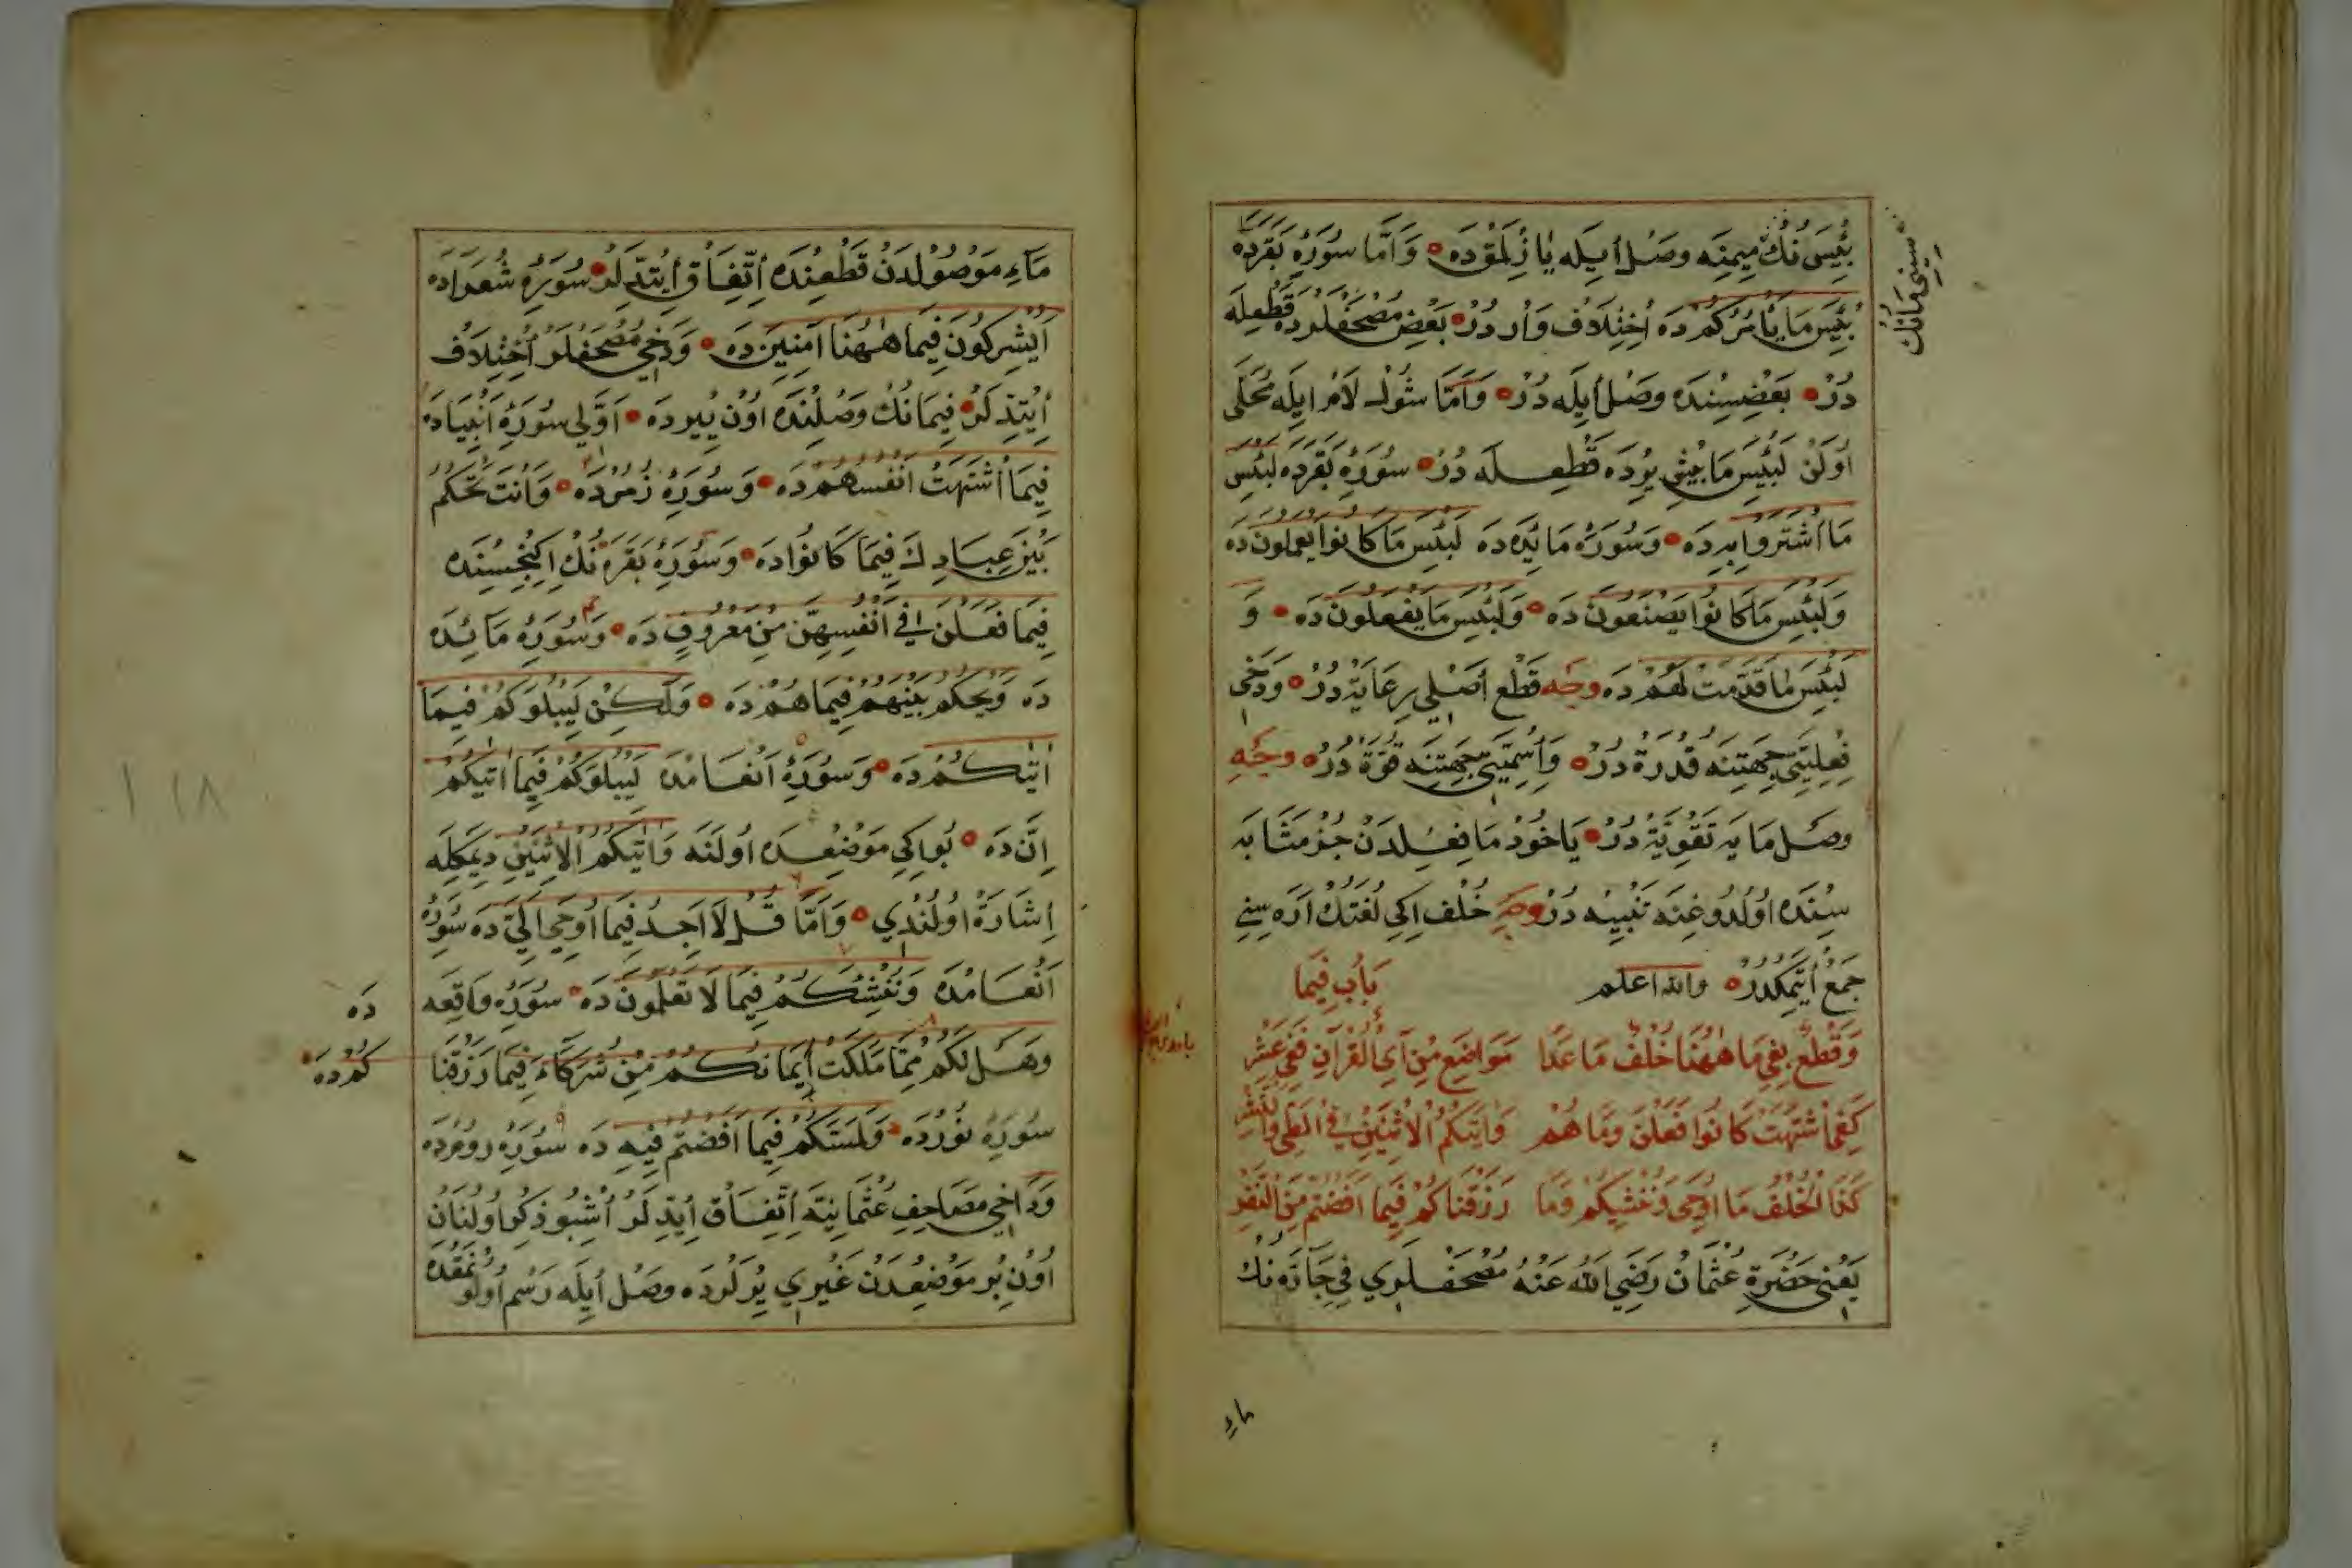 بِئْسَ نُكْ مِيمِنَه وصَلْ اُيِلَه يَا زِلْمَقْدَه وَاَمَّا سُورَۀِ بَقَرَدَه
سِينِى مَانُكْ
بِئْسَ مَا يَأْمُرُكُمْ دَه اُخْتِلَافْ وَارْدُرْ بَعْضِ مُصْحَفْلَرْدَه قَطْعِلَه
دُرْ بَعْضِسِنْدَه وَصْل اُيِلَه دُرْ وَاَمَّا شُولْ لَامْ اِيلَه مُحَلَّى
اُولَنْ لَبِئْسَ مَا بِيْشِ يِرْدَه قَطْعِلَه دُرْ سُورَۀِ بَقَرَدَه لَبِئْسَ
مَا اشْتَرَوْا بِهِ دَه وَسُورَۀِ مَائِدَه دَه لَبِئْسَ مَا كَانُوا يَعْمَلُونَ دَه
وَلَبِئْسَ مَا كَانُوا يَصْنَعُونَ دَه وَلَبِئْسَ مَا يَفْعَلُونَ دَه وَ
لَبِئْسَ مَا قَدَّمَتْ لَهُمْ دَه وجه قَطْع اَصْلِى رِعَايَةْ دُرْ وَدَخِى
فِعْلِيَّتِى جِهَتِنَه قُدْرَةْ دُرْ وَاِسْمِيَّتِى جِهَتِنَه قُوَّةْ دُرْ وَجْهِ
وصَل مَا يَه تَقْوِيَةْ دُرْ يَاخُودْ مَا فِعِلدَنْ جُزْ مَثَابَه
سِنْدَه اُولْدُوغِنَه تَنْبِيهْ دُرْ وجه خُلْف اِكِى لُغَتُكْ اَرَه سِنِى
جَمْعْ اُيْتِمَكْدُرْ والله اعلم بَابُ فِيمَا
وَقُطِعَ بِفِي مَا هٰهُنَا خُلْفٌ مَا عَدَا مَوَاضِعَ مِنْ آىِ الْقُرْآنِ فَفِي عَشْرٍ
كَفِيمَا اشْتَهَتْ كَانُوا فَعَلْنَ وَمَا هُمْ وَاٰتٰيكُمُ الْاِثْنَيْنِ فِي الطَّىِّ وَالنَّشْرِ
كَذَا الْخُلْفُ مَا اُوحِىَ وَنُنْشِئَكُمْ وَمَا رَزَقْنَاكُمْ فِيمَا اَفَضْتُمْ مِنَ النَّفْرِ
يَعْنِى حَضْرَةِ عُثْمَانْ رَضِيَ اللهُ عَنْهُ مُصْحَفْلَرِي فِي جَارَّه نُكْ
مَاءِ
مَاءِ مَوْصُولْدَنْ قَطْعِنْدَه اِتِّفَاقْ اُيْتِدِلَرْ سُورَۀِ شُعَرَادَه
اَيُشْرِكُونَ فِيمَا هٰهُنَا اٰمِنِينَ دَه وَدَخِى مُصْحَفْلَرْ اُخْتِلَافْ
اُيْتِدِلَرْ فِيمَا نُكْ وَصْلِنْدَه اُونْ يِيرْدَه اَوَّلِى سُورَۀِ اَنْبِيَادَه
فِيمَا اشْتَهَتْ اَنْفُسُهُمْ دَه وَسُورَۀِ زُمَرْدَه وَاَنْتَ تَحْكُمُ
بَيْنَ عِبَادِكَ فِيمَا كَانُوا دَه وَسُورَۀِ بَقَرَه نُكْ اِكِنْجِسِنْدَه
فِيمَا فَعَلْنَ فِي اَنْفُسِهِنَّ مِنْ مَعْرُوفٍ دَه وَسُورَۀِ مَائِدَه
دَه وَيَحْكُمُ بَيْنَهُمْ فِيمَا هُمْ دَه وَلٰكِنْ لِيَبْلُوَكُمْ فِيمَا
اٰتٰيكُمْ دَه وَسُورَۀِ اَنْعَامْدَه لِيَبْلُوَكُمْ فِيمَا اٰتٰيكُمْ
اِنَّ دَه بُو اِكِي مَوْضِعْدَه اُولَنَه وَاٰتٰيكُمُ الْاِثْنَيْنِ دِيمَكِلَه
اِشَارَةْ اُولُنْدِي وَاَمَّا قُلْ لَا اَجِدُ فِيمَا اُوحِيَ اِلَيَّ دَه سُورَۀِ
اَنْعَامْدَه وَنُنْشِئَكُمْ فِيمَا لَا تَعْلَمُونَ دَه سُورَۀِ وَاقِعَه
دَه
وَهَلْ لَكُمْ مِمَّا مَلَكَتْ اَيْمَانُكُمْ مِنْ شُرَكَاءَ فِيمَا رَزَقْنَا
كُمْ دَه
سُورَۀِ نُورْدَه وَلَمَسَّكُمْ فِيمَا اَفَضْتُمْ فِيهِ دَه سُورَۀِ رُومْدَه
وَدَاخِى مَصَاحِفِ عُثْمَانِيَّه اِتِّفَاقْ اُيْتِدِلَرْ اُشْبُو ذِكْرْ اُولُنَانْ
اُونْ بُرْ مَوْضِعْدَنْ غَيْرِي يِرْلَرْدَه وصَلْ اُيِلَه رَسْم اُولُونْمَقْدَه
١١٨